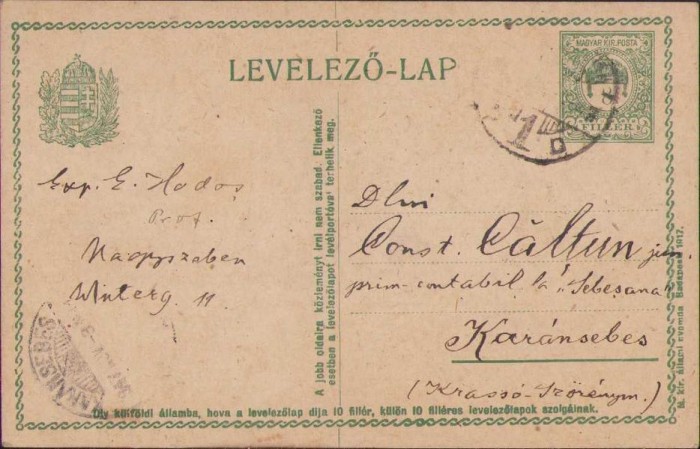 LEVELEZŐ-LAP
MAGYAR KIR. POSTA
8
FILLÉR
1
D
Exp. E. Hodoș
Prof.
Nagyszeben
Winterg. 11
A jobb oldalra közleményt írni nem szabad. Ellenkező
esetben a levelezőlapot levélportóval terhelik meg.
Dlui
Const. Căltun jun.
prim-contabil la „Sebeșana"
Karánsebes
(Krassó-Szörénym.)
KARÁNSEBES
Oly külföldi államba, hova a levelezőlap díja 10 fillér, külön 10 filléres levelezőlapok szolgálnak.
M. kir. állami nyomda Budapest 1917.